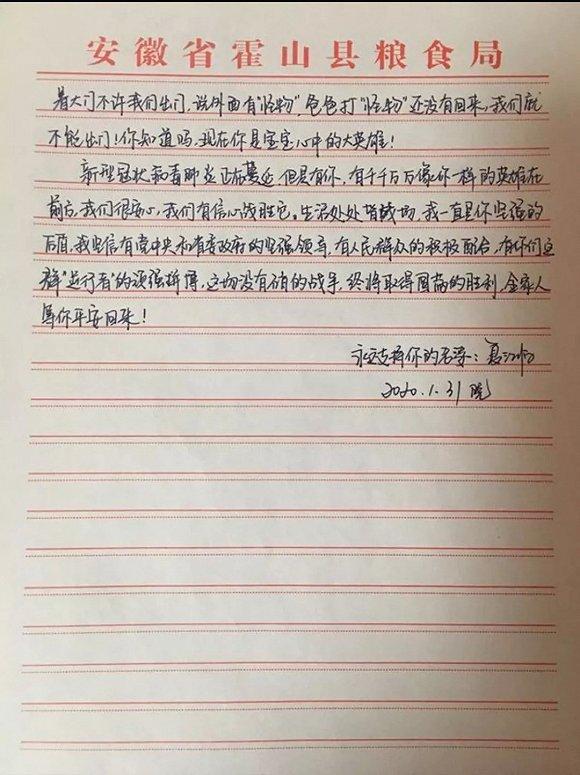 安徽省霍山县粮食局
着大门不许我们出门，说外面有“怪物”，爸爸打“怪物”还没有回来，我们就
不能出门！你知道吗，现在你是宝宝心中的大英雄！
新型冠状病毒肺炎正在蔓延，但是有你，有千千万万像你一样的英雄在
前方，我们很安心，我们有信心战胜它，生活处处皆战场，我一直是你坚强的
后盾，我坚信有党中央和省委政府的坚强领导，有人民群众的积极配合，有你们这
群“逆行者”的顽强拼搏，这场没有硝的战争，终将取得圆满的胜利，全家人
等你平安回来！
永远支持你的老婆：夏
2020.1.31 晚